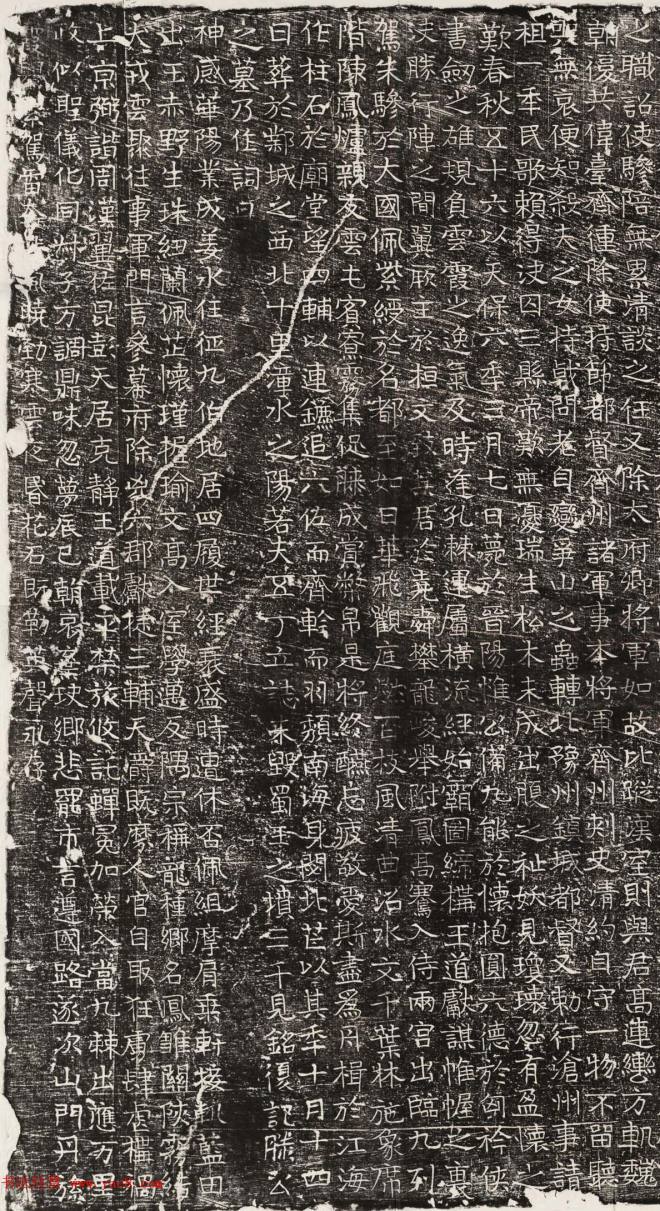 之職詔使驂陪無累清談之任又除太府卿將軍如故比蹤漢室則與君高連轡方軌魏
朝優共偉臺齊連除使持節都督齊州諸軍事本將軍齊州刺史清約自守一物不留聽
訟無哀便知殺夫之女持斷問老自變爭山之蟲轉北豫州鎮城都督又勑行滄州事請
租一年民歌賴得決囚三縣帝歎無憂瑞生松木未成出腹之祉妖見瓊瓌忽有盈懷之
歎春秋五十六以天保六年三月七日薨於晉陽惟公備九能於懷抱圓六德於匈衿俠
書劍之雄規負雲霞之逸氣及時逢孔棘運屬橫流經始霸圖締構王道獻謀帷幄之
決勝行陣之間翼厥主於桓文 居於堯舜攀龍峻舉附鳳高騫入侍兩宮出臨九列
駕朱驂於大國佩紫綬於名都至如日華飛觀庭 百枝風清曲沼水文千葉林施象席
階陳鳳燭親友雲屯賓寮霧集促膝成賞 帛是將終醼忘疲敬愛斯盡為舟楫於江海
作柱石於廟堂望四輔以連鑣追六佐而齊軫而羽 南海身閟北芒以其年十月十四
日葬於鄴城之西北十里漳水之陽若夫五丁立誌 毀蜀王之墳三千見銘復記滕公
之墓乃作詞曰
神感華陽業成姜水任征九伯地居四履世經衰盛時遭休否佩組摩肩乘軒接軌藍田
出玉赤野生珠紉蘭佩芷懷瑾握瑜文高入室學邁反隅宗稱龍種鄉名鳳雛關陝霧結
犬戎雲聚任事軍門言參幕府除凶六郡獻捷三輔天爵既縻人官自取狂虜肆虐構禍
上京弼諧周漢翼佐昆彭天居克靜王道載平榮旅攸託蟬冕加榮入當九棘出應万里
政似聖儀化同 子方調鼎味忽夢辰巳朝哀 玦鄉悲罷市言遵國路逐次山門丹旐
駕 曉勁寒雲夜昏花石既勒英聲永存